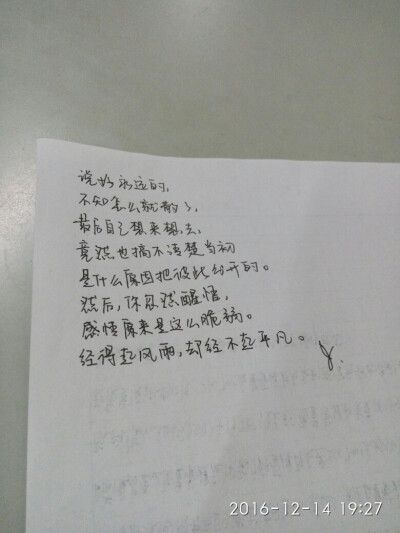 说好永远的,
不知怎么就散了,
最后自己想来想去,
竟然也搞不清楚当初
是什么原因把彼此分开的。
然后,你忽然醒悟,
感情原来是这么脆弱。
经得起风雨,却经不起平凡。
y.
2016-12-14 19:27